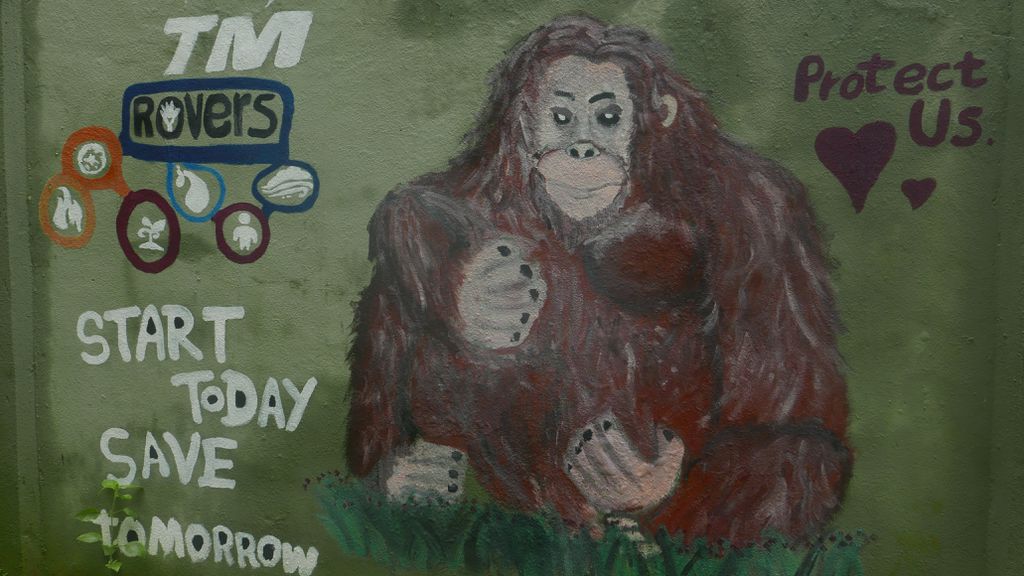 TM
ROVERS
START
TODAY
SAVE
TOMORROW
Protect
Us.